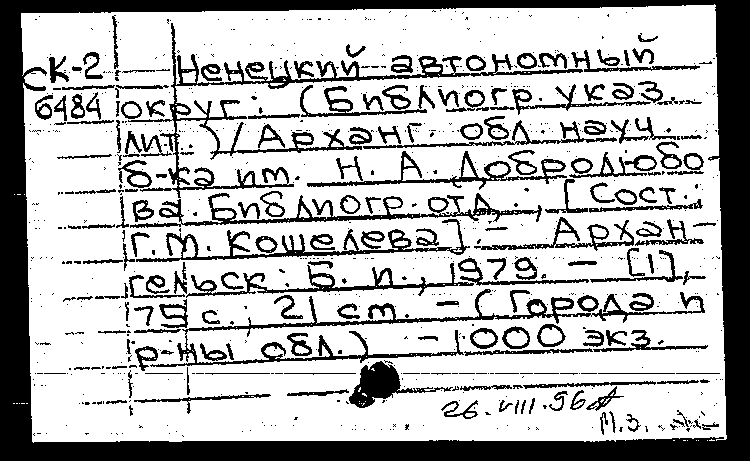 СК-2 Ненецкий автономный
6484 округ: (Библиогр. указ.
лит.)/Арханг. обл. науч.
б-ка им. Н. А. Добролюбо-
ва. Библиогр. отд.; [Сост.:
Г.М. Кошелева]. - Архан-
гельск: Б. и., 1979. - [1],
75 с.; 21 см. - (Города и
р-ны обл.) - 1000 экз.
26.VIII.96
М.З.